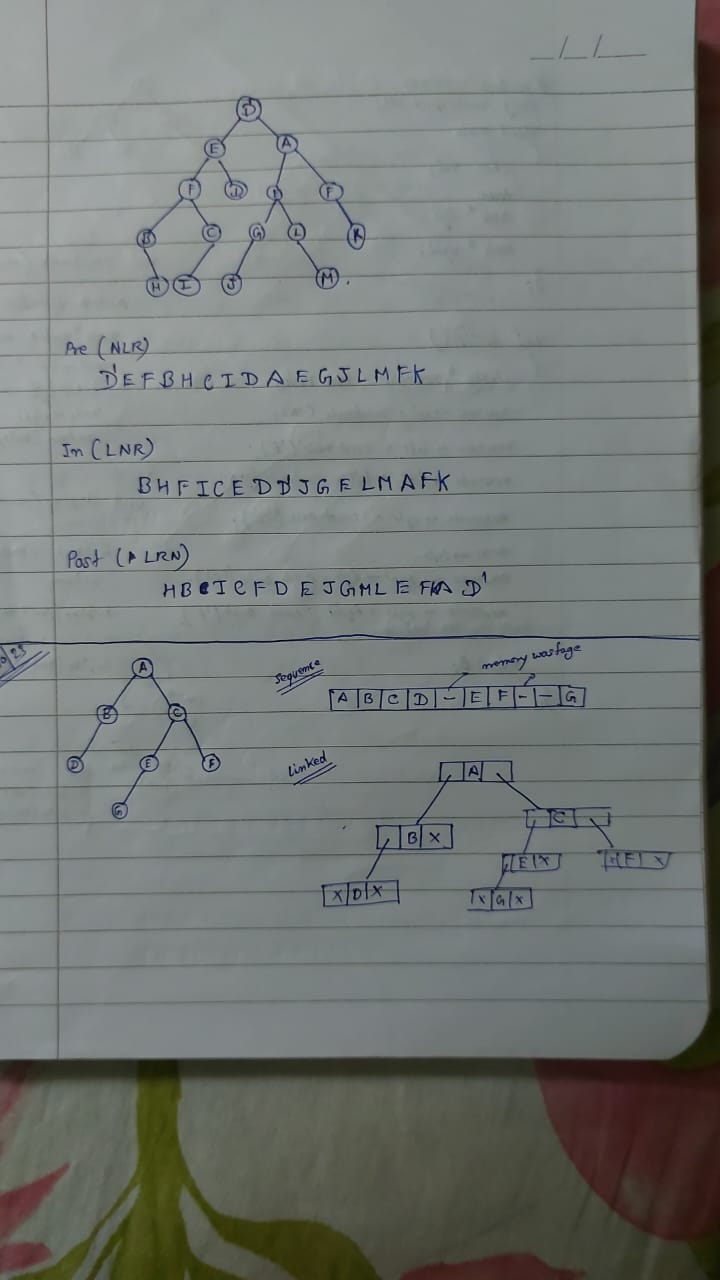 _/_/__
D'
E A
F D E F
B C G L K
H I J M .
Pre (NLR)
D'EFBHCIDAEGJLMFK
In (LNR)
BHFICEDD'JGELMAFK
Post (LRN)
HBICFDEJGMLEFKAD'
25
A
B C
D E F
G
Sequence
memory wastage
A B C D – E F – – G
Linked
A
B X C
X D X E X F X
X G X